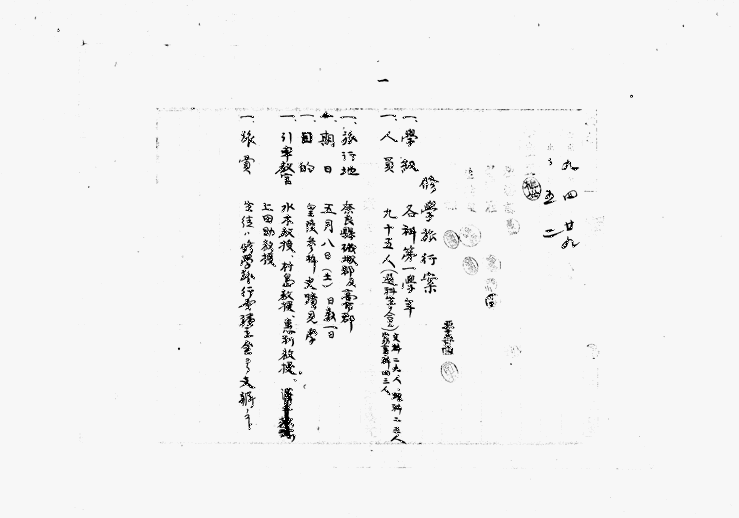 一
九 四 廿九
〃 五 二
修學旅行案
一、學級 各科第一學年
一、人員 九十五人(選科生ヲ含ム)文科二九人、理科二三人 家事科四三人
一、旅行地 奈良縣磯城郡及高市郡
一、期日 五月八日(土)日數一日
一、目的 皇陵參拜史蹟見學
一、引率敎官 水木敎授、村島敎授、
上田助敎授
一、旅費 生徒ハ修學旅行費積立金ヨリ支辨ス